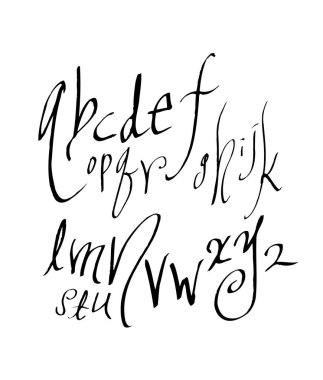 abcdef
opqr ghijk
lmn vwxyz
stu